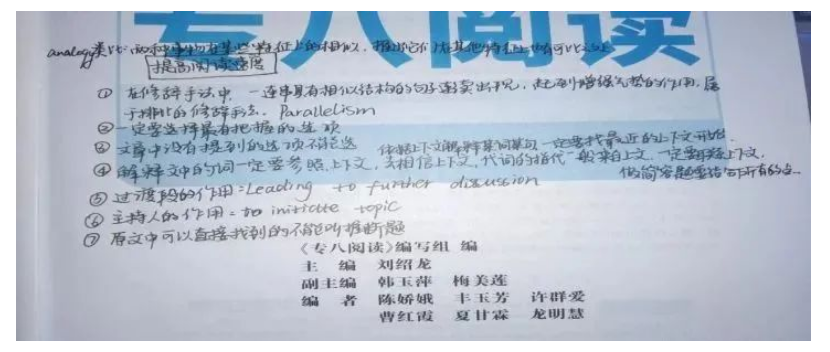 专八阅读
analogy类比:两种事物在某些特征上的相似,推出它们在其他特征上也可以相似
提高阅读速度
① 在修辞手法中,一连串具有相似结构的句子连续出现,起到增强气势的作用,属
于排比的修辞手法. Parallelism
②一定要选择最有把握的选项
③ 文章中没有提到的选项不能选 依据上下文解释某词某句一定要找最近的上下文开始.
④ 解释文中的词一定要参照上下文,去相信上下文,代词的指代一般来自上文,一定要联系上下文.
做简答题要结合所有的点.
⑤ 过渡段的作用:Leading to further discussion
⑥ 主持人的作用: to initiate topic
⑦ 原文中可以直接找到的不能叫推断题
《专八阅读》编写组 编
主 编 刘绍龙
副主编 韩玉萍 梅美莲
编 者 陈娇娥 丰玉芳 许群爱
曹红霞 夏甘霖 龙明慧